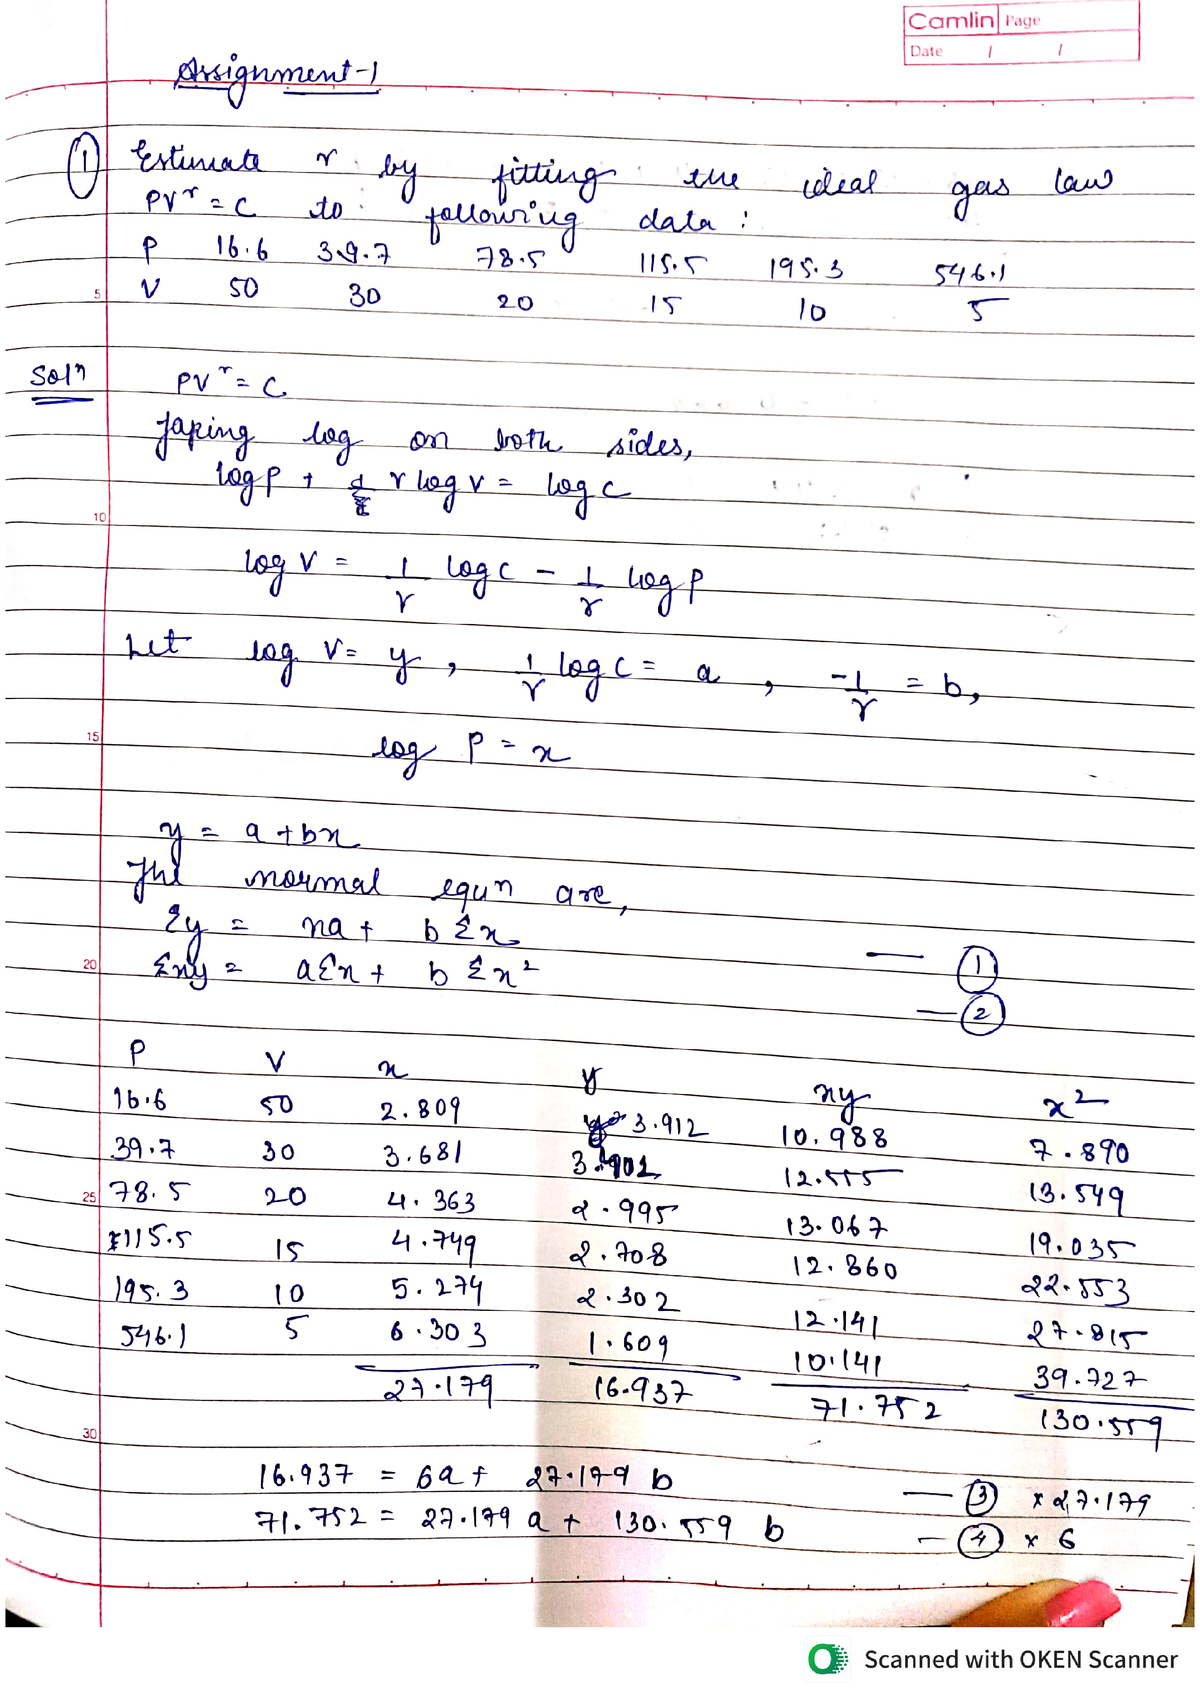 Camlin Page
Date / /
Assignment-1
① Estimate r by fitting the ideal gas law
PVʳ = C to following data :
P 16.6 39.7 78.5 115.5 195.3 546.1
5 V 50 30 20 15 10 5
Solⁿ PVʳ = C
Taping log on both sides,
log P + r log V = log C
10
log V = 1/r log C - 1/r log P
Let log V = y , 1/r log C = a , -1/r = b,
15 log P = x
y = a + bx
The normal equn are,
Σy = na + b Σx — ①
20 Σxy = aΣx + b Σx² — ②
P V x y xy x²
16.6 50 2.809 3.912 10.988 7.890
39.7 30 3.681 3.401 12.555 13.549
25 78.5 20 4.363 2.995 13.067 19.035
115.5 15 4.749 2.708 12.860 22.553
195.3 10 5.274 2.302 12.141 27.815
546.1 5 6.303 1.609 10.141 39.727
27.179 16.937 71.752 130.559
30
16.937 = 6a + 27.179 b — ③ × 27.179
71.752 = 27.179 a + 130.559 b — ④ × 6
Scanned with OKEN Scanner